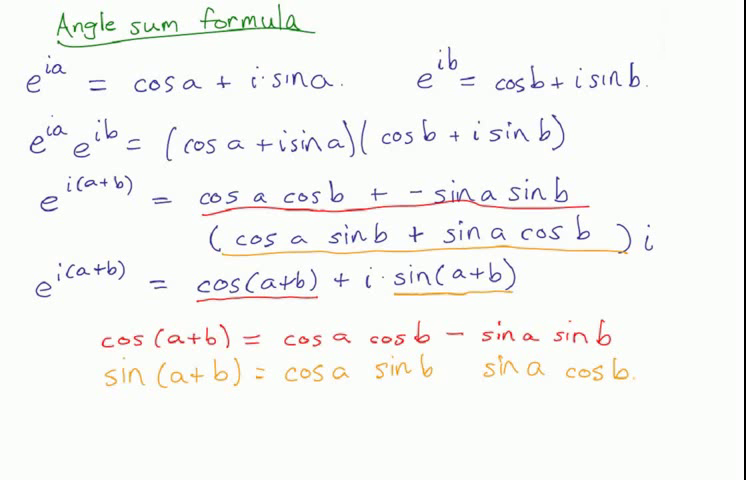 Angle sum formula
e^{ia} = cos a + i·sin a. e^{ib} = cos b + i sin b.
e^{ia} e^{ib} = (cos a + i sin a)(cos b + i sin b)
e^{i(a+b)} = cos a cos b + - sin a sin b
(cos a sin b + sin a cos b) i
e^{i(a+b)} = cos(a+b) + i·sin(a+b)
cos(a+b) = cos a cos b - sin a sin b
sin(a+b) = cos a sin b sin a cos b.